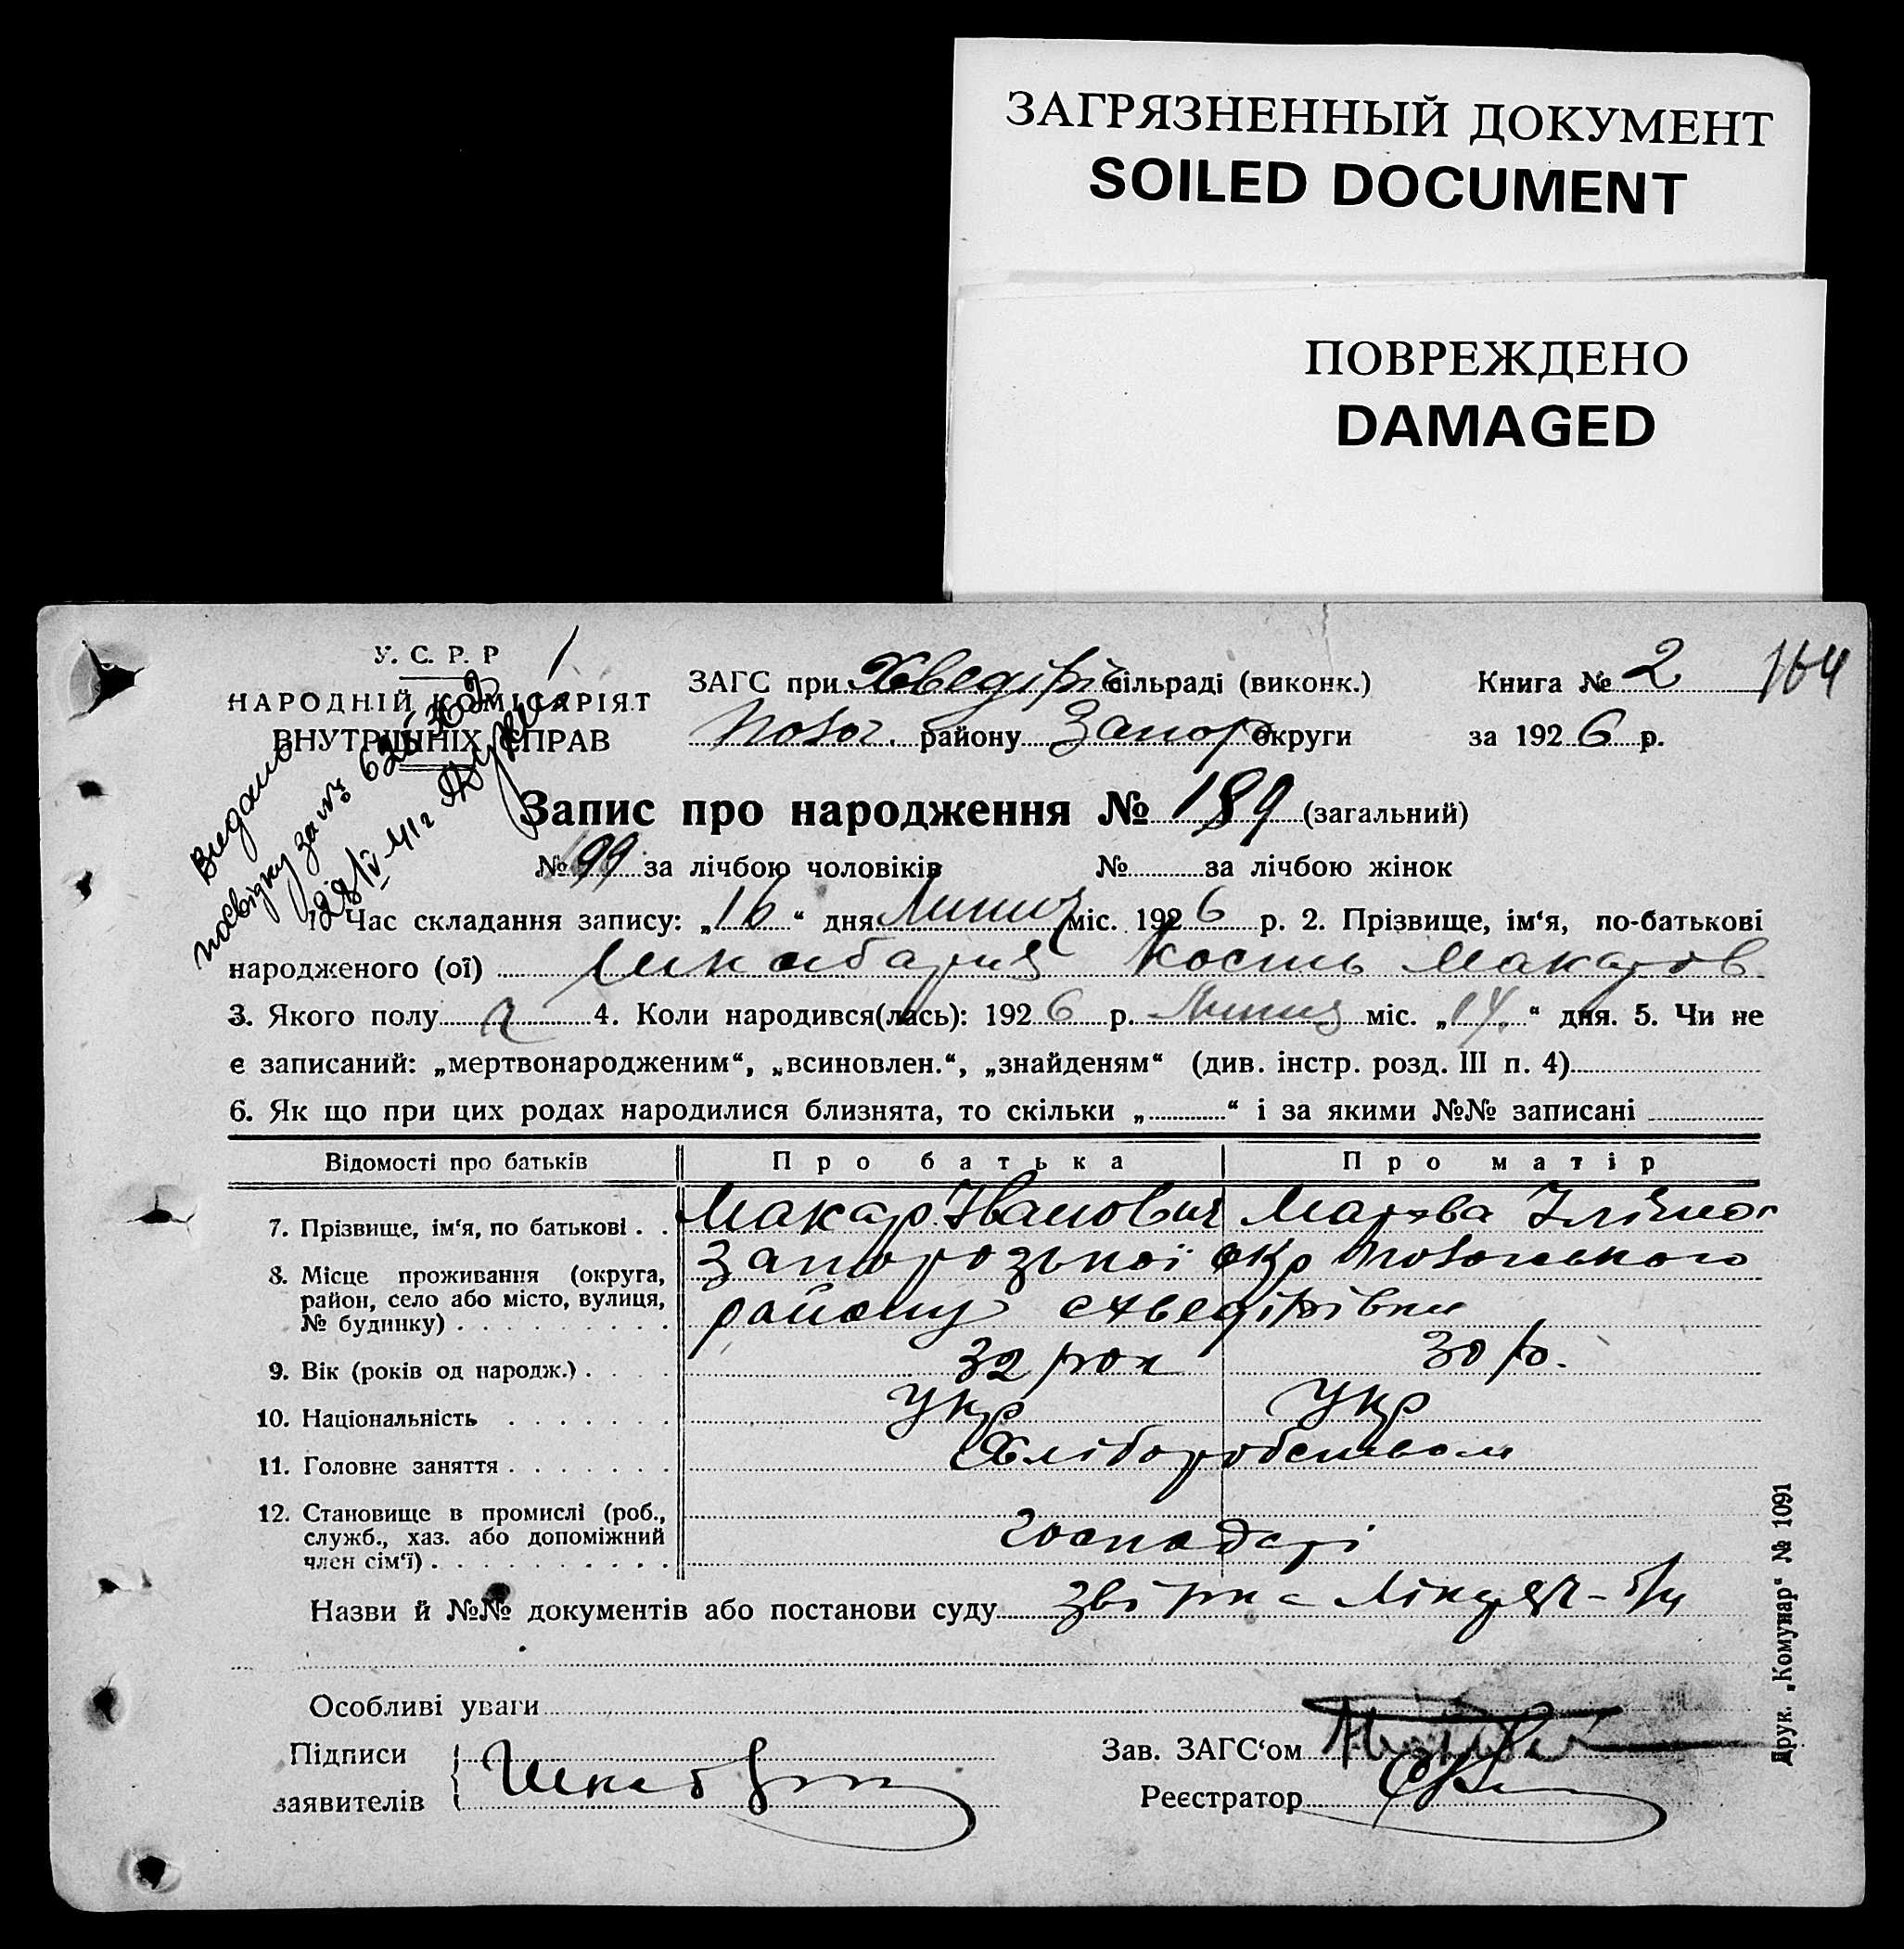 ЗАГРЯЗНЕННЫЙ ДОКУМЕНТ
SOILED DOCUMENT
ПОВРЕЖДЕНО
DAMAGED
У. С. Р. Р
НАРОДНІЙ КОМІСАРІЯТ
ВНУТРІШНІХ СПРАВ
Видано
посвідку за №
ЗАГС при Хведірів сільраді (виконк.)
району Запор округи
Книга № 2
164
за 1926 р.
Запис про народження № 189 (загальний)
№ 99 за лічбою чоловіків № за лічбою жінок
1. Час складання запису: „16“ дня Липня міс. 1926 р. 2. Прізвище, ім'я, по-батькові
народженого (ої) Шкабаря Кость Макаров
3. Якого полу ч 4. Коли народився(лась): 1926 р. Липня міс. „14“ дня. 5. Чи не
є записаний: „мертвонародженим“, „всиновлен.“, „знайденям“ (див. інстр. розд. III п. 4)
6. Як що при цих родах народилися близнята, то скільки „ “ і за якими №№ записані
Відомості про батьків Про батька Про матір
7. Прізвище, ім'я, по батькові . . Макар Іванович
8. Місце проживання (округа, район, село або місто, вулиця, № будинку) Запорозької окр
району с Хведірівки
9. Вік (років од народж.) 32 рок 30 р.
10. Національність Укр Укр
11. Головне заняття Хліборобством
12. Становище в промислі (роб., служб., хаз. або допоміжний член сім'ї) господарі
Назви й №№ документів або постанови суду
Особливі уваги
Підписи
заявителів
Зав. ЗАГС'ом
Реєстратор
Друк. „Комунар“ № 1091